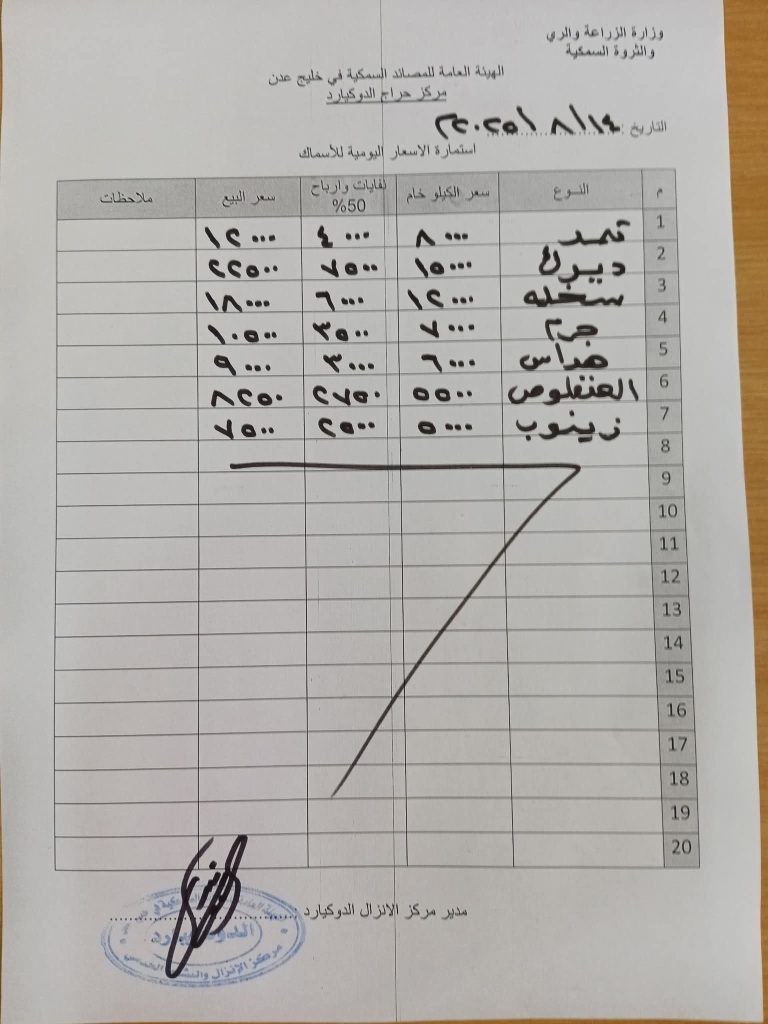 وزارة الزراعة والري
والثروة السمكية
الهيئة العامة للمصائد السمكية في خليج عدن
مركز حراج الدوكيارد
التاريخ : ١٤ / ٨ / ٢٠٢٥م
استمارة الاسعار اليومية للأسماك
م النوع سعر الكيلو خام نفايات وارباح 50% سعر البيع ملاحظات
1 ثمد ٨٠٠٠ ٤٠٠٠ ١٢٠٠٠
2 ديرك ١٥٠٠٠ ٧٥٠٠ ٢٢٥٠٠
3 سخله ١٢٠٠٠ ٦٠٠٠ ١٨٠٠٠
4 جرم ٧٠٠٠ ٣٥٠٠ ١٠٥٠٠
5 هداس ٦٠٠٠ ٣٠٠٠ ٩٠٠٠
6 ٥٥٠٠ ٢٧٥٠ ٨٢٥٠
7 زينوب ٥٠٠٠ ٢٥٠٠ ٧٥٠٠
8
9
10
11
12
13
14
15
16
17
18
19
20
مدير مركز الانزال الدوكيارد :
مركز الإنزال